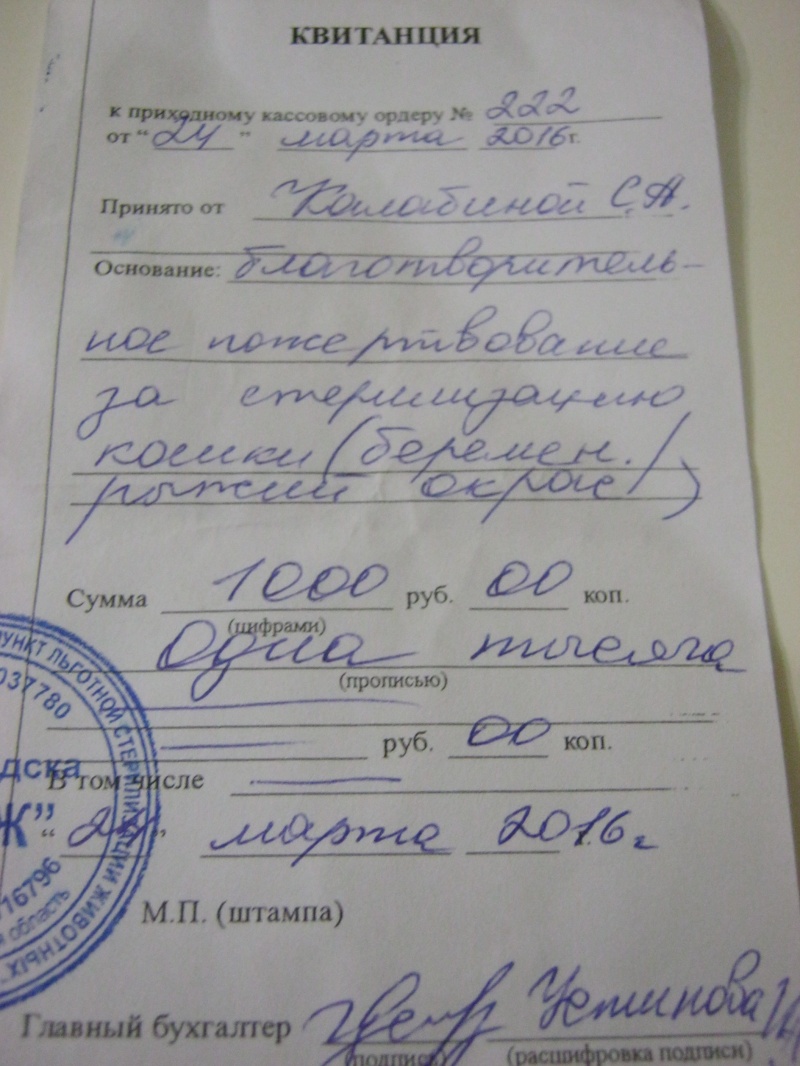 КВИТАНЦИЯ
к приходному кассовому ордеру № 222
от “24” марта 2016г.
Принято от Калабиной С.А.
Основание: благотворитель-
ное пожертвование
за стерилизацию
кошки (беремен./
рыжий окрас/)
Сумма 1000 руб. 00 коп.
(цифрами)
Одна тысяча
(прописью)
руб. 00 коп.
В том числе
“24” марта 2016 г
М.П. (штампа)
Главный бухгалтер Устинова
(подпись) (расшифровка подписи)
ПУНКТ ЛЬГОТНОЙ СТЕРИЛИЗАЦИИ ЖИВОТНЫХ"
037780
дска
Ж”
16796
область